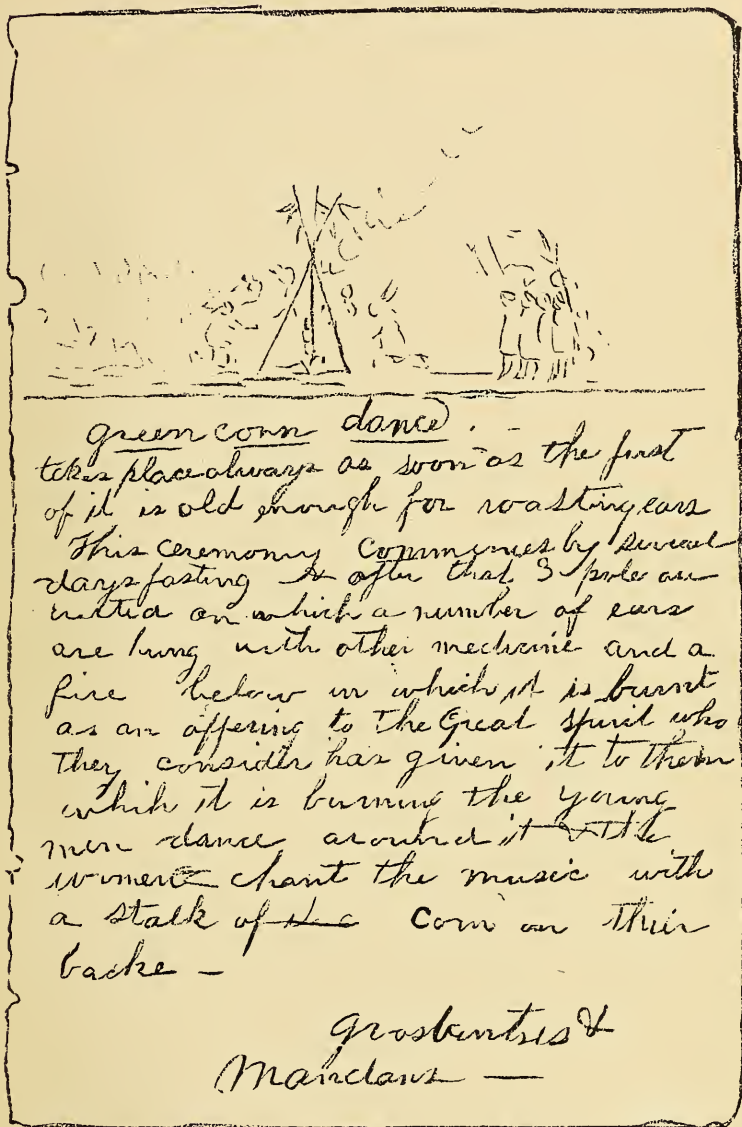 green corn dance. -
takes place always as soon as the first
of it is old enough for roasting ears
This ceremony commences by several
days fasting & after that 3 pole are
erected on which a number of ears
are hung with other medicine and a
fire below in which it is burnt
as an offering to the Great Spirit who
they consider has given it to them
which it is burning the young
men dance around it & the
women chant the music with
a stalk of corn on their
backe —
Grosbentres &
Mandans —